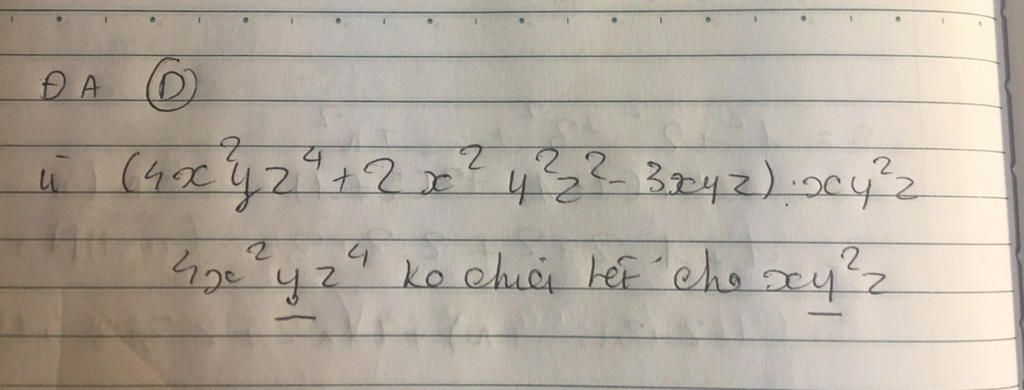 ĐA D
vì (4x²yz⁴ + 2x²y²z² - 3xyz) : xy²z
4x²yz⁴ ko chia hết cho xy²z